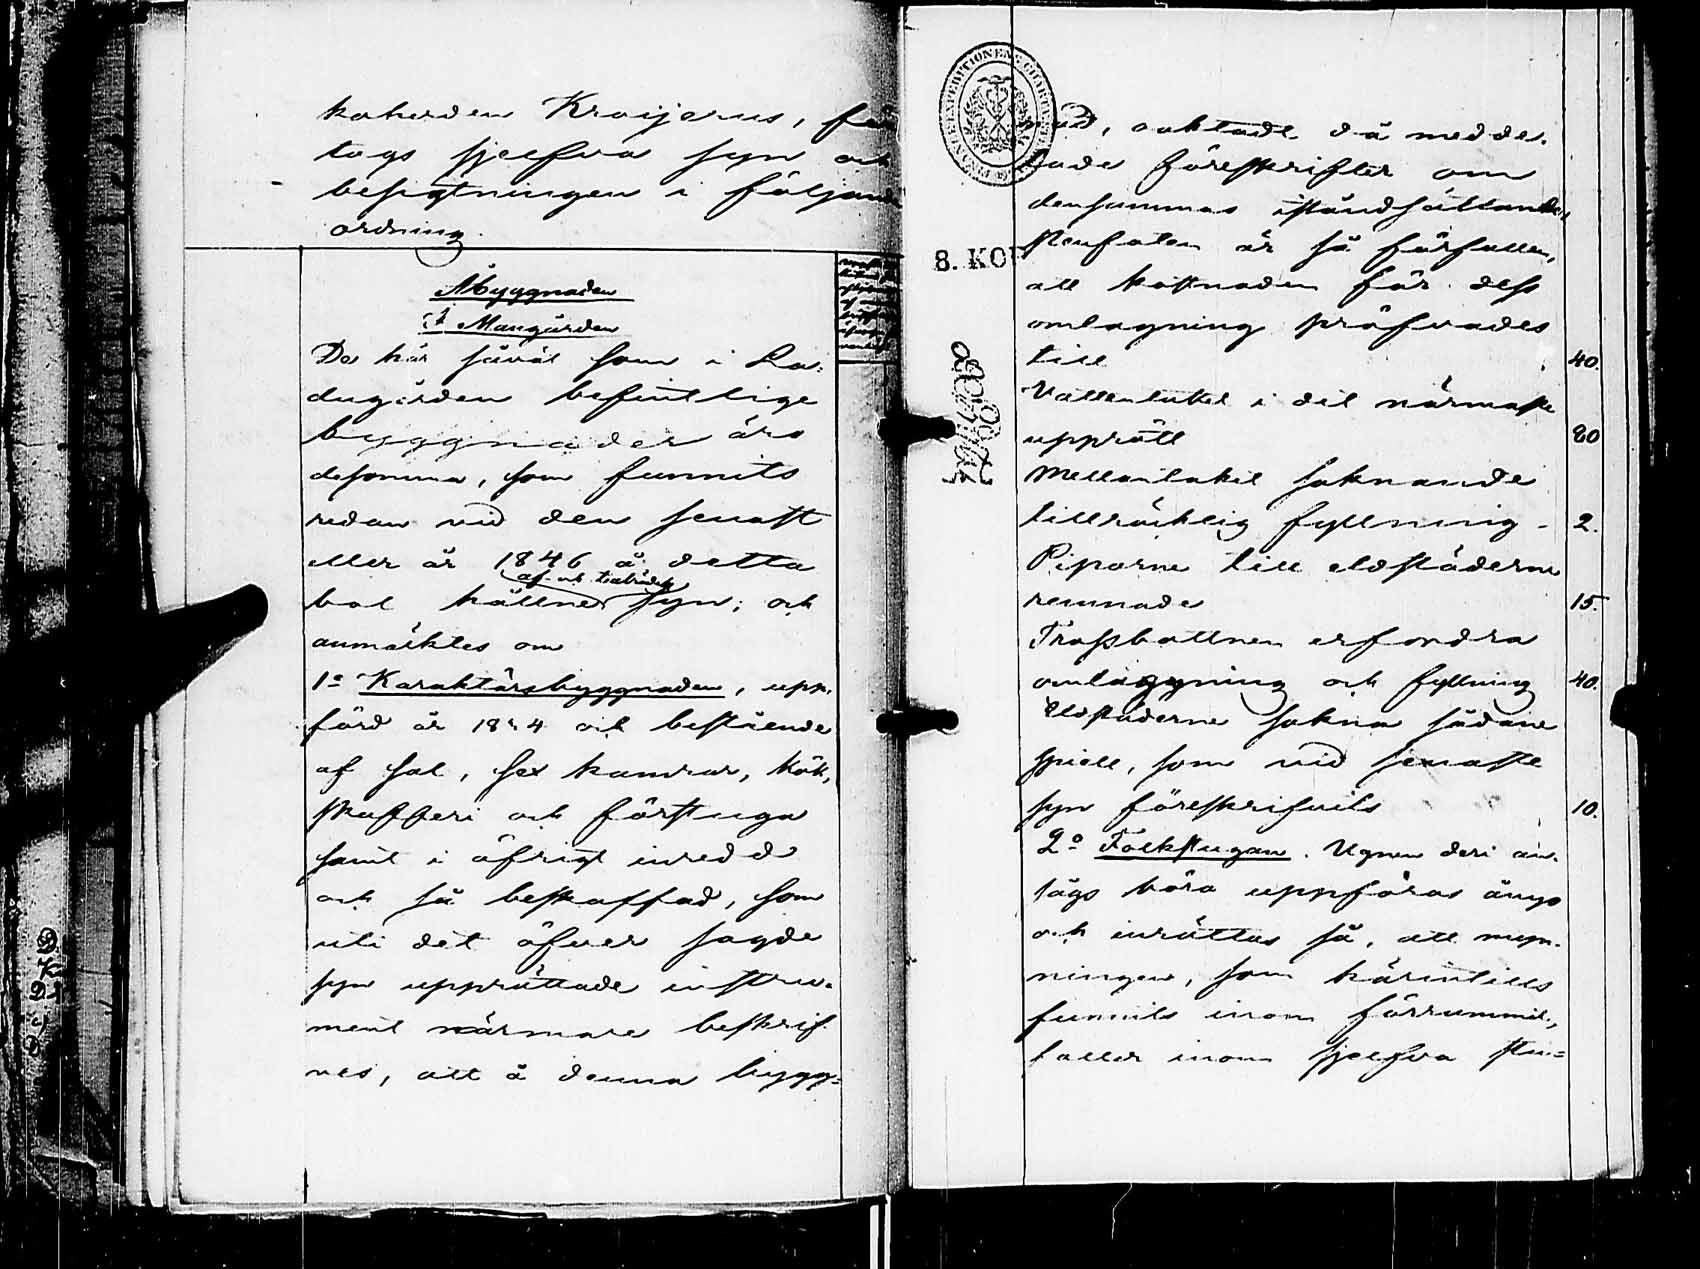 koherden Kroijerus, 
togs sjelfva syn och
besigtningen i följande
ordning.
Åbyggnaden
i Mangården
De här såväl som i La-
dugården befintlige
byggnader äro
desamma, som funnits
redan vid den senast
eller år 1846 å detta
af- och tillträdes
bol hållne syn; och
anmärktes om
1o Karaktärsbyggnaden, upp-
förd år och bestående
af sal, sex kamrar, kök,
skafferi och förstuga
samt i öfrigt inredd
och så beskaffad, som
uti det öfver sagde
syn upprättade instru-
ment närmare beskrif-
ves, att å denna bygg-
CHARTÆ
8. KO
nad, oaktadt då medde-
lade föreskrifter om
densammas iståndsättande,
stenfoten är så förfallen,
att kostnaden för dess
omlagning pröfvades
till 40.
Vattentaket i det närmaste
upprätt 20
Mellantaket saknande
tillräcklig fyllning - 2.
Piporne till eldstäderne
remnade 15.
Trossbottnen erfordra
omläggning och fyllning 40.
Eldstäderne sakna sådane
spiell, som vid senaste
syn föreskrifvits 10.
2o Folkstugan. Ugnen deri an-
togs böra uppföras ånyo
och inrättas så, att myn-
ningen, som härintills
funnits inom förrummet,
faller inom sjelfva stu-